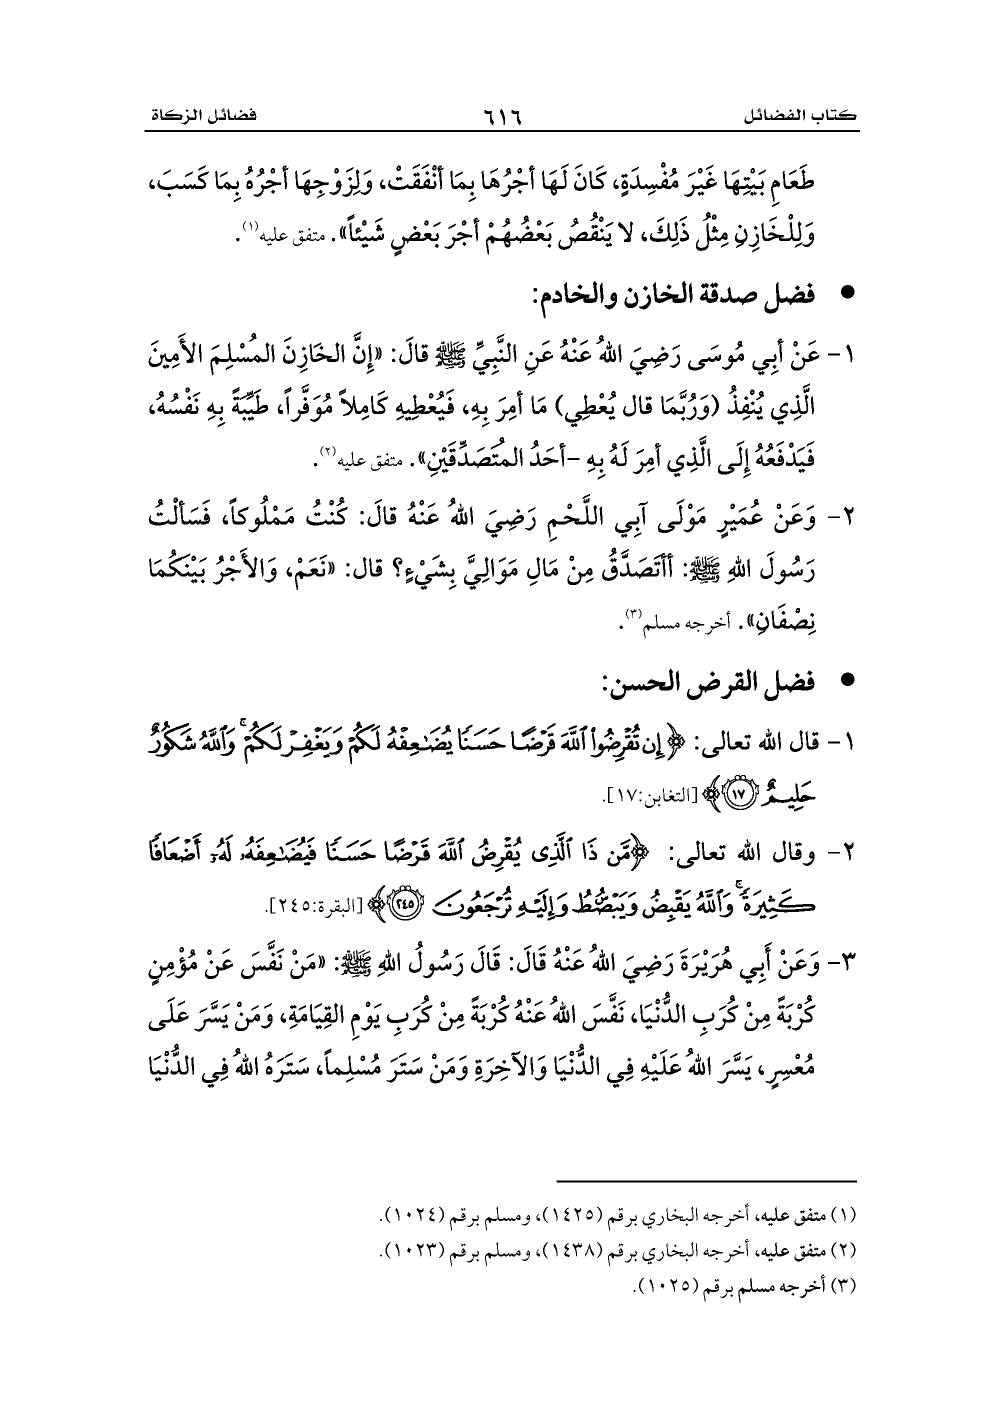 كتاب الفضائل ٦١٦ فضائل الزكاة
طَعَامِ بَيْتِهَا غَيْرَ مُفْسِدَةٍ، كَانَ لَهَا أجْرُهَا بِمَا أنْفَقَتْ، وَلِزَوْجِهَا أجْرُهُ بِمَا كَسَبَ،
وَلِلْخَازِنِ مِثْلُ ذَلِكَ، لا يَنْقُصُ بَعْضُهُمْ أجْرَ بَعْضٍ شَيْئاً». متفق عليه(١).
• فضل صدقة الخازن والخادم:
١- عَنْ أبِي مُوسَى رَضِيَ اللهُ عَنْهُ عَنِ النَّبِيِّ ﷺ قالَ: «إنَّ الخَازِنَ المُسْلِمَ الأَمِينَ
الَّذِي يُنْفِذُ (وَرُبَّمَا قال يُعْطِي) مَا أمِرَ بِهِ، فَيُعْطِيهِ كَامِلاً مُوَفَّراً، طَيِّبَةً بِهِ نَفْسُهُ،
فَيَدْفَعُهُ إلَى الَّذِي أمِرَ لَهُ بِهِ -أحَدُ المُتَصَدِّقَيْنِ». متفق عليه(٢).
٢- وَعَنْ عُمَيْرٍ مَوْلَى آبِي اللَّحْمِ رَضِيَ اللهُ عَنْهُ قالَ: كُنْتُ مَمْلُوكاً، فَسَألْتُ
رَسُولَ اللهِ ﷺ: أأتَصَدَّقُ مِنْ مَالِ مَوَالِيَّ بِشَيْءٍ؟ قال: «نَعَمْ، وَالأَجْرُ بَيْنَكُمَا
نِصْفَانِ». أخرجه مسلم(٣).
• فضل القرض الحسن:
١- قال الله تعالى: ﴿إِن تُقْرِضُوا۟ ٱللَّهَ قَرْضًا حَسَنًا يُضَٰعِفْهُ لَكُمْ وَيَغْفِرْ لَكُمْ ۚ وَٱللَّهُ شَكُورٌ
حَلِيمٌ ١٧﴾ [التغابن:١٧].
٢- وقال الله تعالى: ﴿مَّن ذَا ٱلَّذِى يُقْرِضُ ٱللَّهَ قَرْضًا حَسَنًا فَيُضَٰعِفَهُۥ لَهُۥٓ أَضْعَافًا
كَثِيرَةً ۚ وَٱللَّهُ يَقْبِضُ وَيَبْصُۜطُ وَإِلَيْهِ تُرْجَعُونَ ٢٤٥﴾ [البقرة:٢٤٥].
٣- وَعَنْ أَبِي هُرَيْرَةَ رَضِيَ اللهُ عَنْهُ قَالَ: قَالَ رَسُولُ اللهِ ﷺ: «مَنْ نَفَّسَ عَنْ مُؤْمِنٍ
كُرْبَةً مِنْ كُرَبِ الدُّنْيَا، نَفَّسَ اللهُ عَنْهُ كُرْبَةً مِنْ كُرَبِ يَوْمِ القِيَامَةِ، وَمَنْ يَسَّرَ عَلَى
مُعْسِرٍ، يَسَّرَ اللهُ عَلَيْهِ فِي الدُّنْيَا وَالآخِرَةِ وَمَنْ سَتَرَ مُسْلِماً، سَتَرَهُ اللهُ فِي الدُّنْيَا
(١) متفق عليه، أخرجه البخاري برقم (١٤٢٥)، ومسلم برقم (١٠٢٤).
(٢) متفق عليه، أخرجه البخاري برقم (١٤٣٨)، ومسلم برقم (١٠٢٣).
(٣) أخرجه مسلم برقم (١٠٢٥).